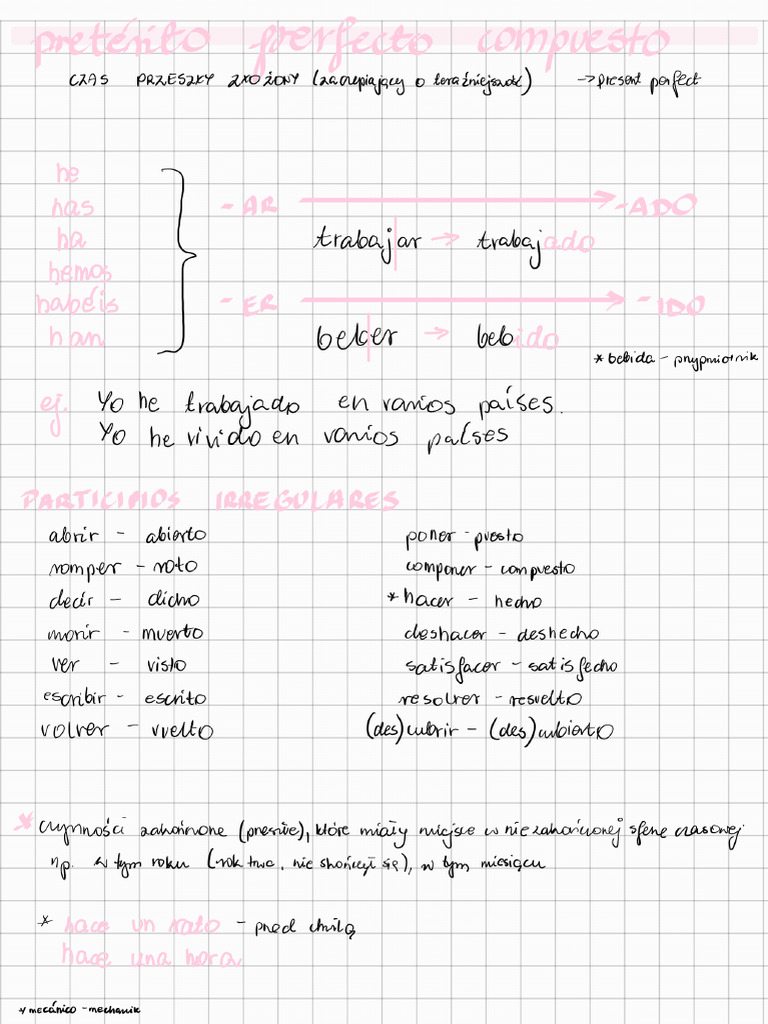 pretérito perfecto compuesto
CZAS PRZESZŁY ZŁOŻONY (zaczepiający o teraźniejszość) -> present perfect
he
has
ha
hemos
habéis
han
- AR -> - ADO
trabajar -> trabajado
- ER -> - IDO
beber -> bebido
* bebida - przypmiotnik
ej. Yo he trabajado en varios países.
Yo he vivido en varios países
PARTICIPIOS IRREGULARES
abrir - abierto
romper - roto
decir - dicho
morir - muerto
ver - visto
escribir - escrito
volver - vuelto
poner - puesto
componer - compuesto
* hacer - hecho
deshacer - deshecho
satisfacer - satisfecho
resolver - resuelto
(des)cubrir - (des)cubierto
* czynności zakończone (przeszłe), które miały miejsce w niezakończonej sferze czasowej
np. w tym roku (-rok trwa, nie skończył się), w tym miesiącu
* hace un rato - przed chwilą
hace una hora
* mecánico - mechanik